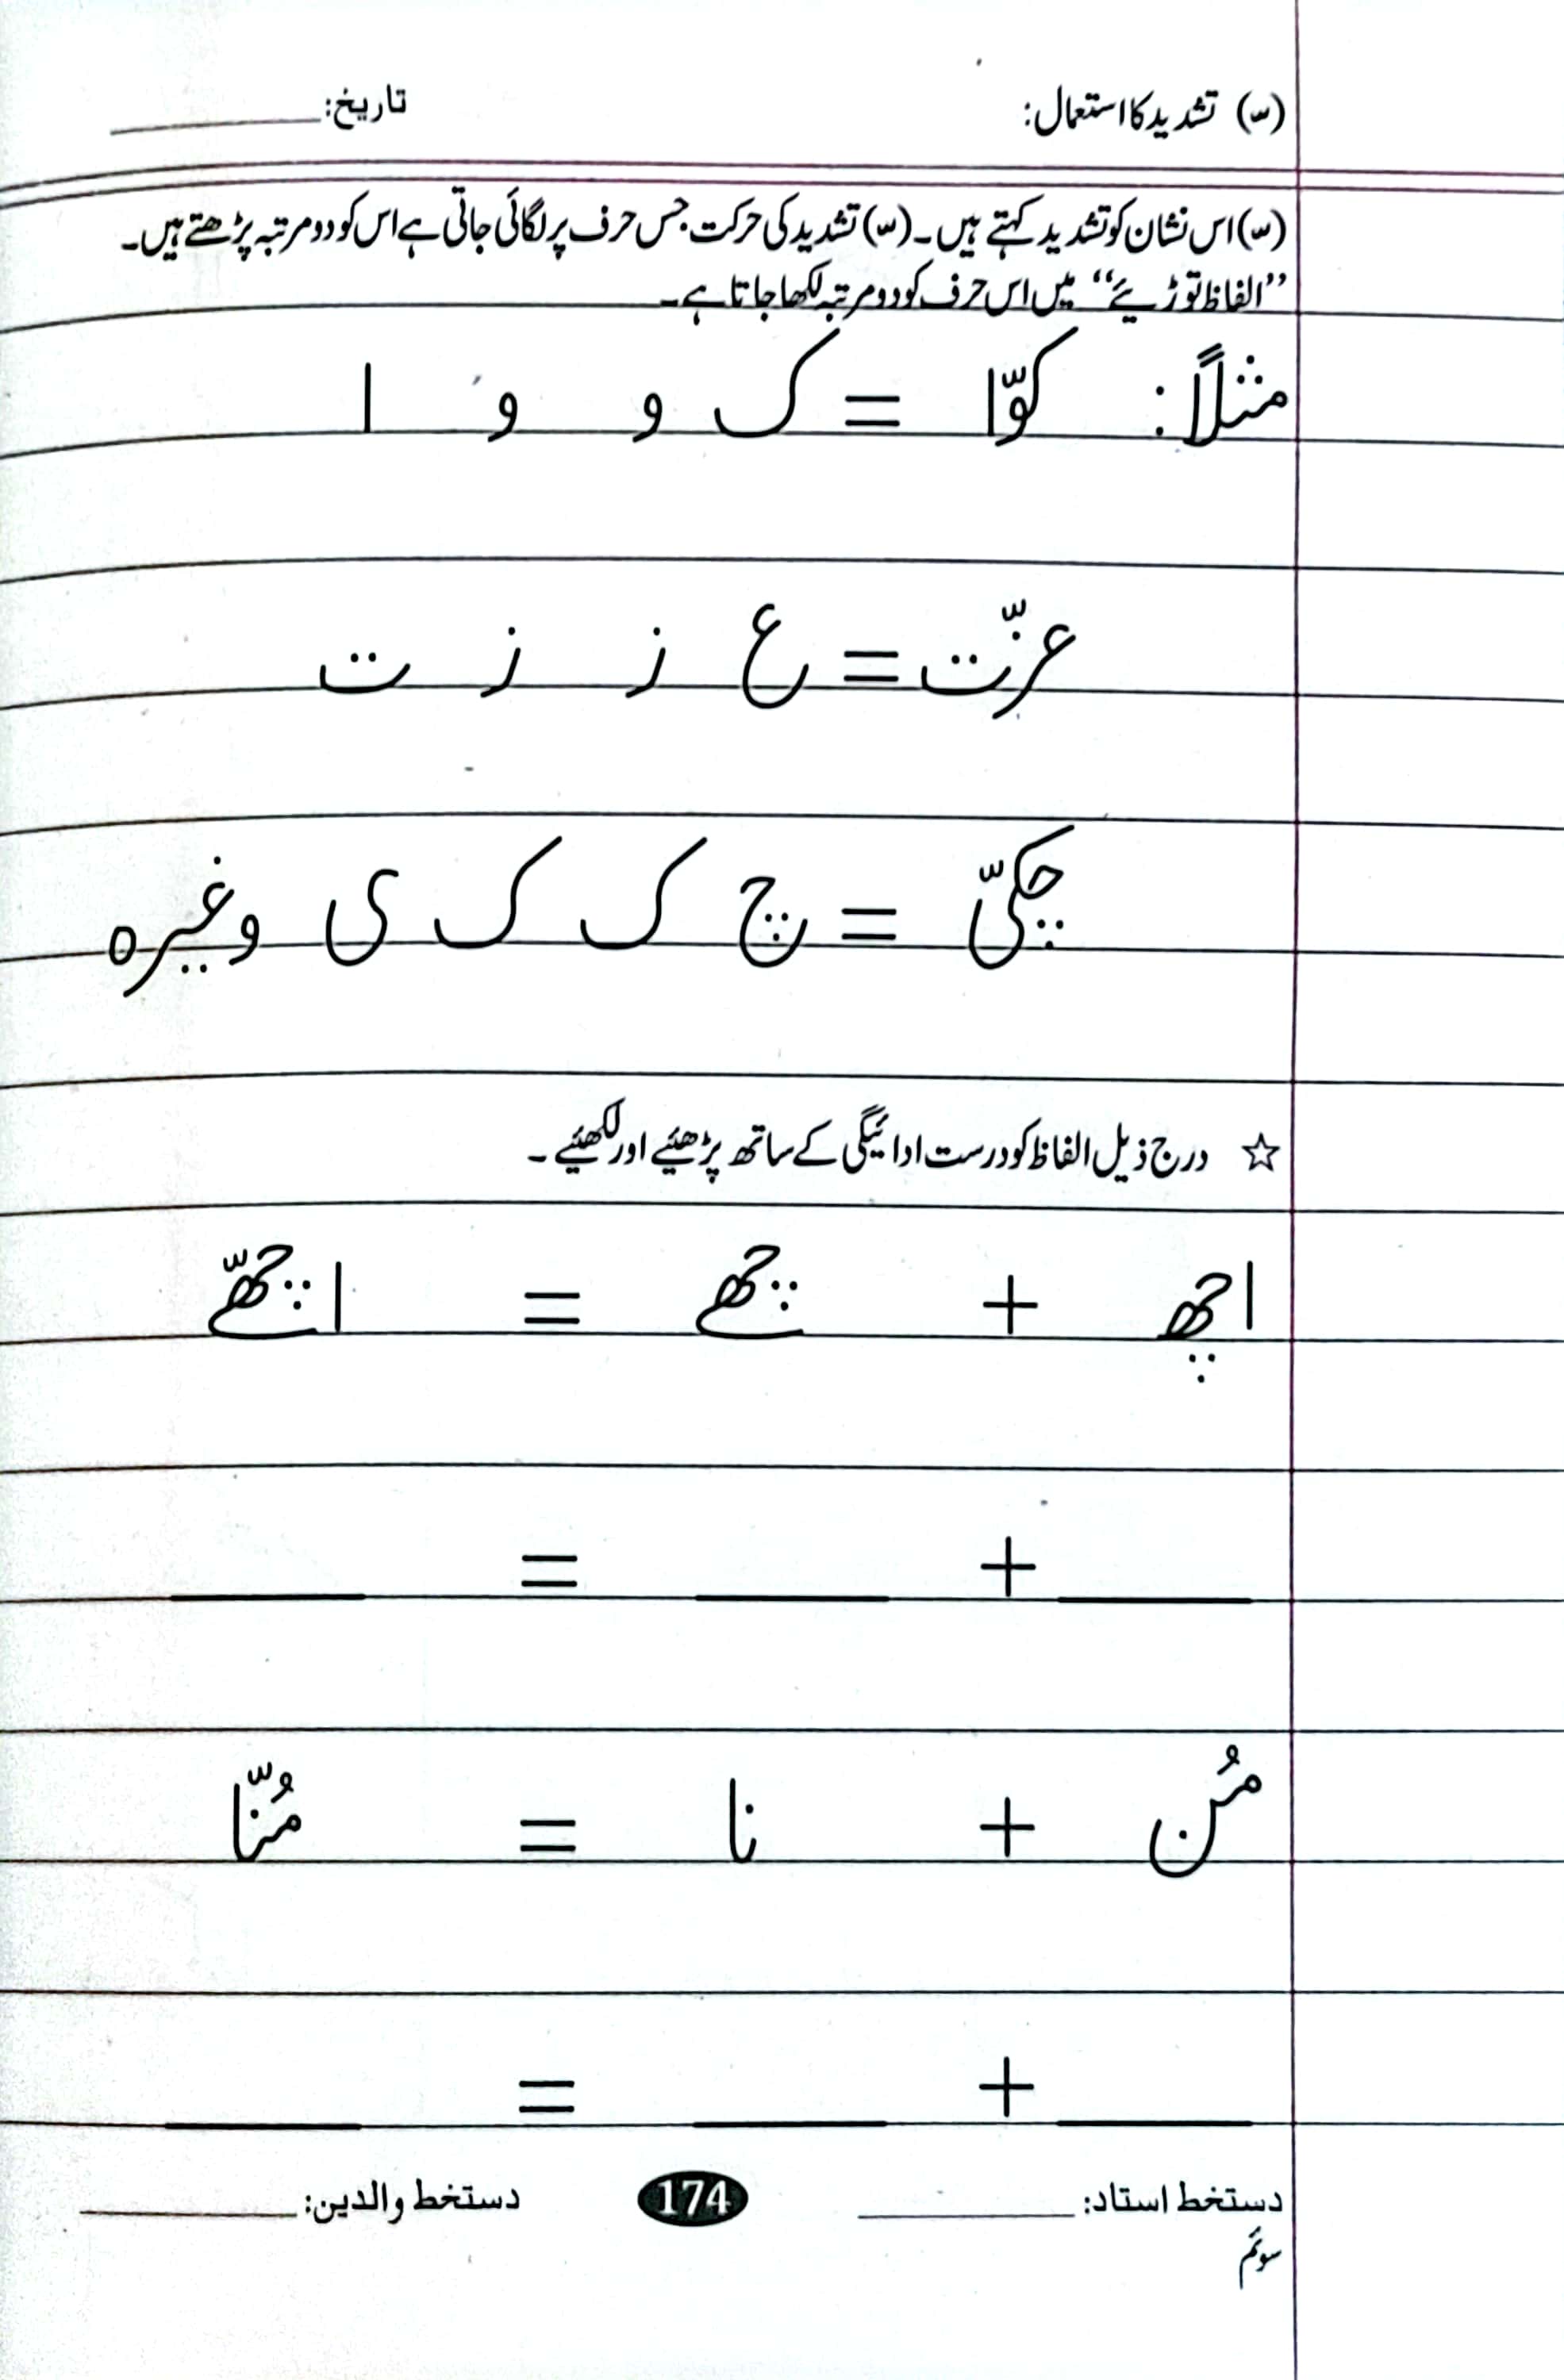 (ّ) تشدید کا استعمال: تاریخ:
(ّ) اس نشان کو تشدید کہتے ہیں۔ (ّ) تشدید کی حرکت جس حرف پر لگائی جاتی ہے اس کو دو مرتبہ پڑھتے ہیں۔
”الفاظ توڑیئے“ میں اس حرف کو دو مرتبہ لکھا جاتا ہے۔
مثلاً: کوّا = ک و و ا
عزّت = ع ز ز ت
چکّی = چ ک ک ی وغیرہ
☆ درج ذیل الفاظ کو درست ادائیگی کے ساتھ پڑھئیے اور لکھئیے۔
اچھ + چھے = اچھّے
+ =
مُن + نا = مُنّا
+ =
دستخط استاد: 174 دستخط والدین:
سوئم